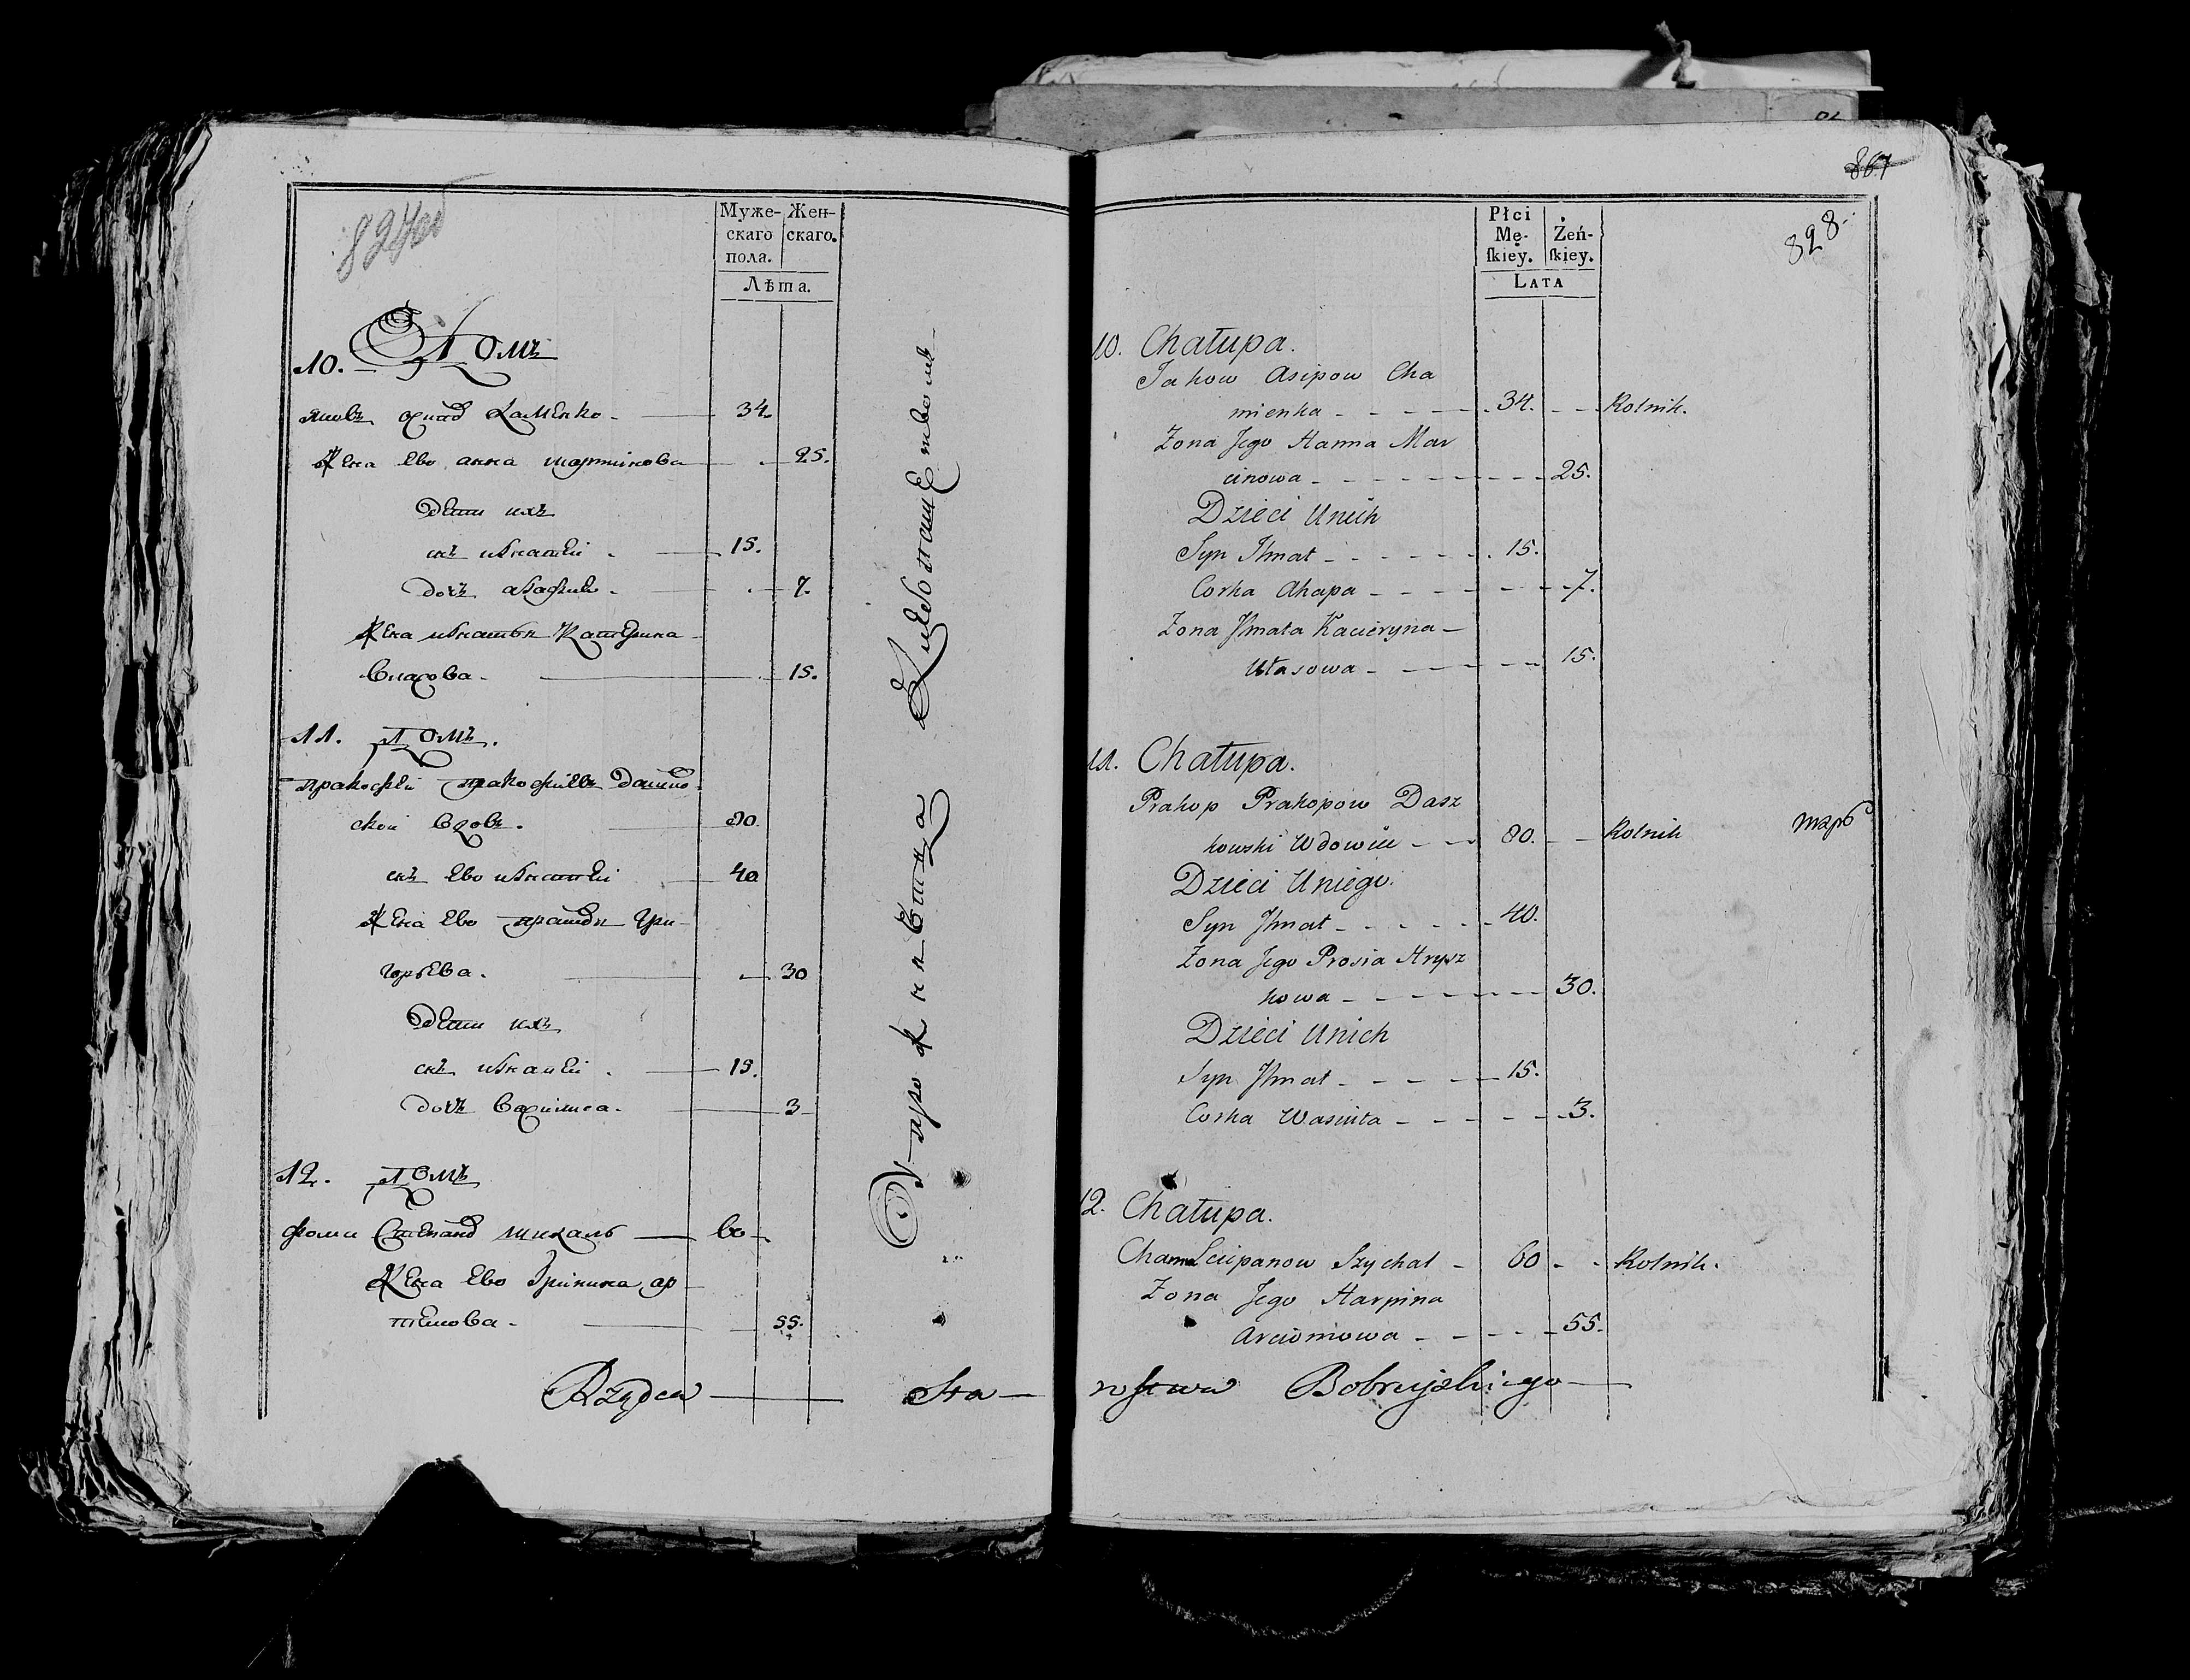 827об
Муже-
скаго
пола.
Жен-
скаго.
Лѣта.
10. Домъ
Яковъ Осиповъ Хаменко 34.
Жена Ево Анна Мартинова 25.
Дети ихъ
снъ Игнатей 15.
дочь Агафия 7.
Жена Игнатья Катерина
Власова 15.
11. Домъ.
Пракофей Пракофиевъ Дашко-
ской вдовъ. 80
снъ Ево Игнатей 40
Жена Ево Прасидья Гри-
горьева. 30
Дети ихъ
снъ Игнатей 15.
дочь Василиса 3
12. Домъ
Фома Степановъ Шихаль 60
Жена Ево Гринина Ар
темова 55.
Упражняются Хлебопашествомъ
Rządca Sta-
867
828
Płci
Mę-
ſkiey.
Żeń-
ſkiey.
LATA
10. Chałupa.
Jakow Asipow Cha
mienka 34. Rolnik.
Zona Jego Hanna Mar
cinowa 25.
Dzieci Unich
Syn Ihnat 15.
Corka Ahapa 7.
Zona Ihnata Kacieryna
Ułasowa 15.
11. Chałupa.
Prakop Prakopow Dasz
kowski Wdowiec 80. Rolnik
Dzieci Uniego.
Syn Ihnat 40.
Zona Jego Prosia Hrysz
kowa 30.
Dzieci Unich
Syn Ihnat 15.
Corka Wasiuta 3.
12. Chałupa.
Chama Sciepanow Szychal 60 Rolnik.
Zona Jego Harpina
Arciomowa 55.
rostwa Bobruyskiego